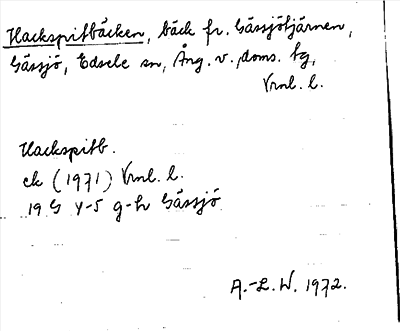 Hackspitbäcken, bäck fr. Gässjötjärnen,
Gässjö, Edsele sn, Ång. v., doms. tg,
Vrnl. l.
Hackspitb.
ek (1971) Vrnl. l.
19 G 4-5 g-h Gässjö
A.-L. W. 1972.